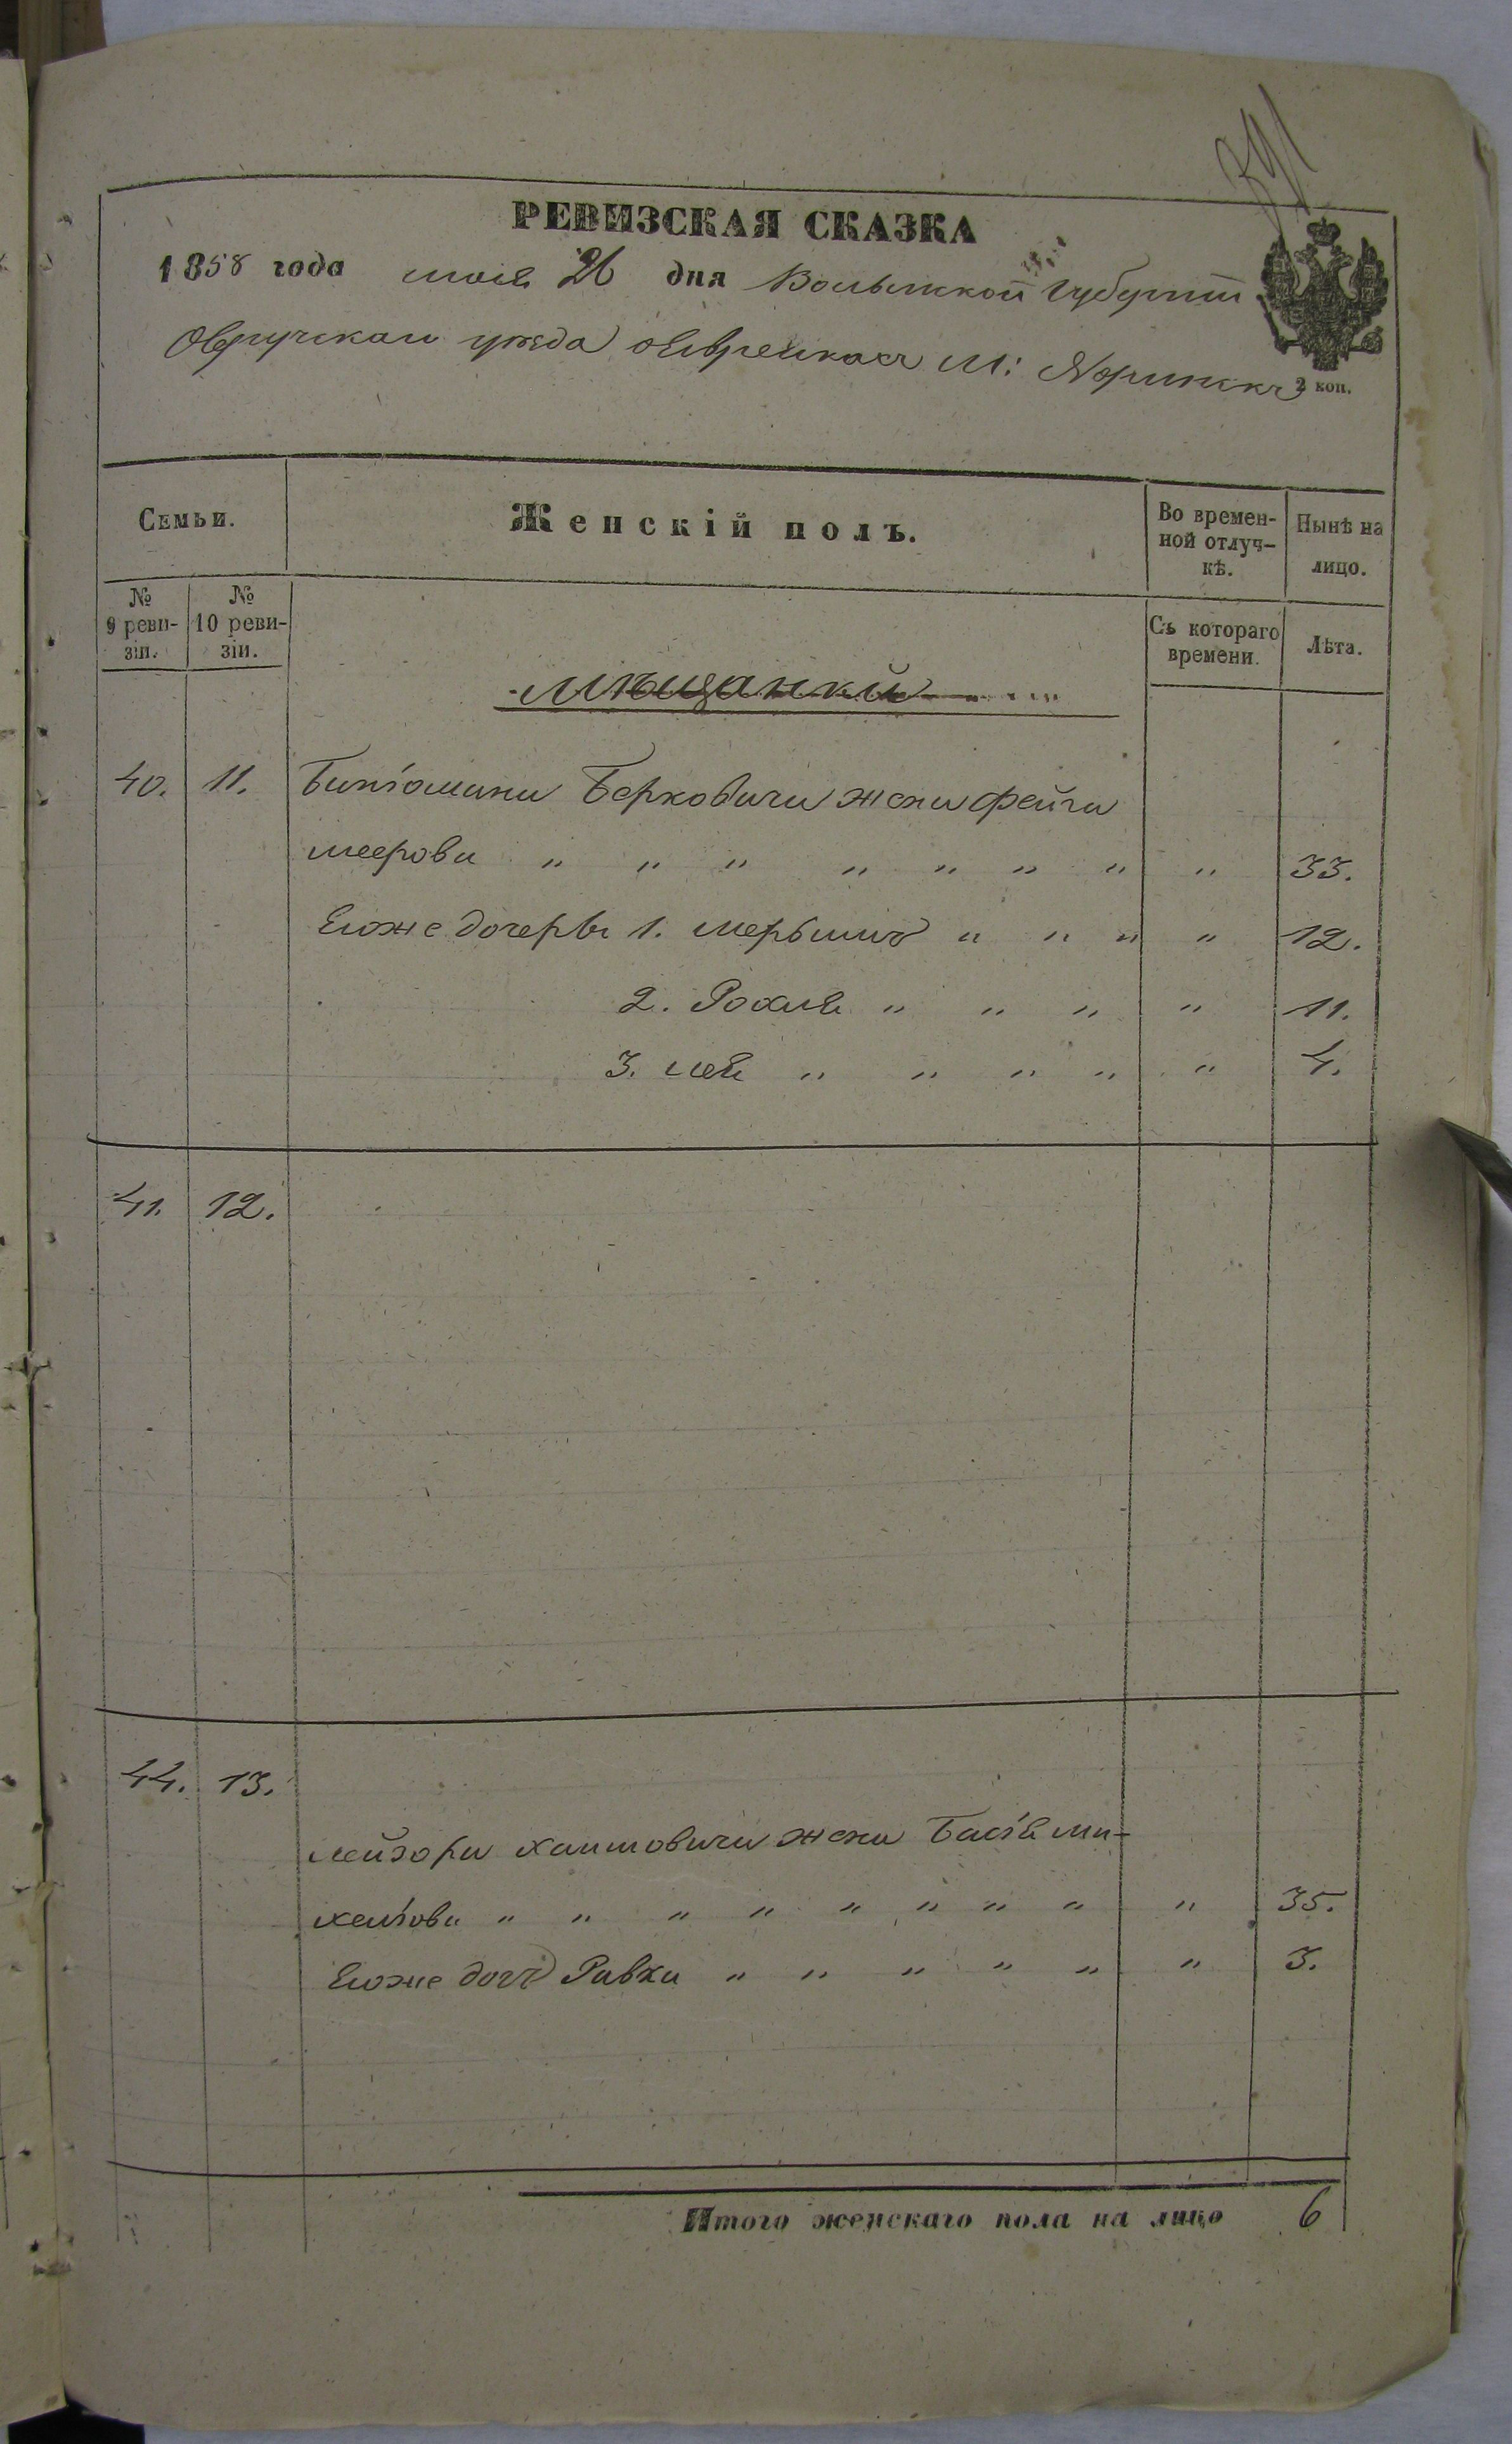 391
РЕВИЗСКАЯ СКАЗКА
1858 года мая 26 дня Волынской Губерніи
Овручскаго уѣзда о Евреяхъ М: Норинскъ
2 коп.
Семьи.
Женскій полъ.
Во времен-
ной отлуч-
кѣ.
Нынѣ на
лицо.
№
9 реви-
зіи.
№
10 реви-
зіи.
Съ котораго
времени.
Лѣта.
Мѣщанкій
40. 11. Биніомина Берковича жена Фейга
меерова " " " " " " " " 33.
Егоже дочеръ 1. мерьмить " " " " 12.
2. Рохля " " " " 11.
3. лея " " " " " 4.
41. 12.
44. 13.
лейзора хаимовича жена Басія ми-
хелiова " " " " " " " " " 35.
Егоже дочь Ривка " " " " " " 3.
Итого женскаго пола на лицо 6